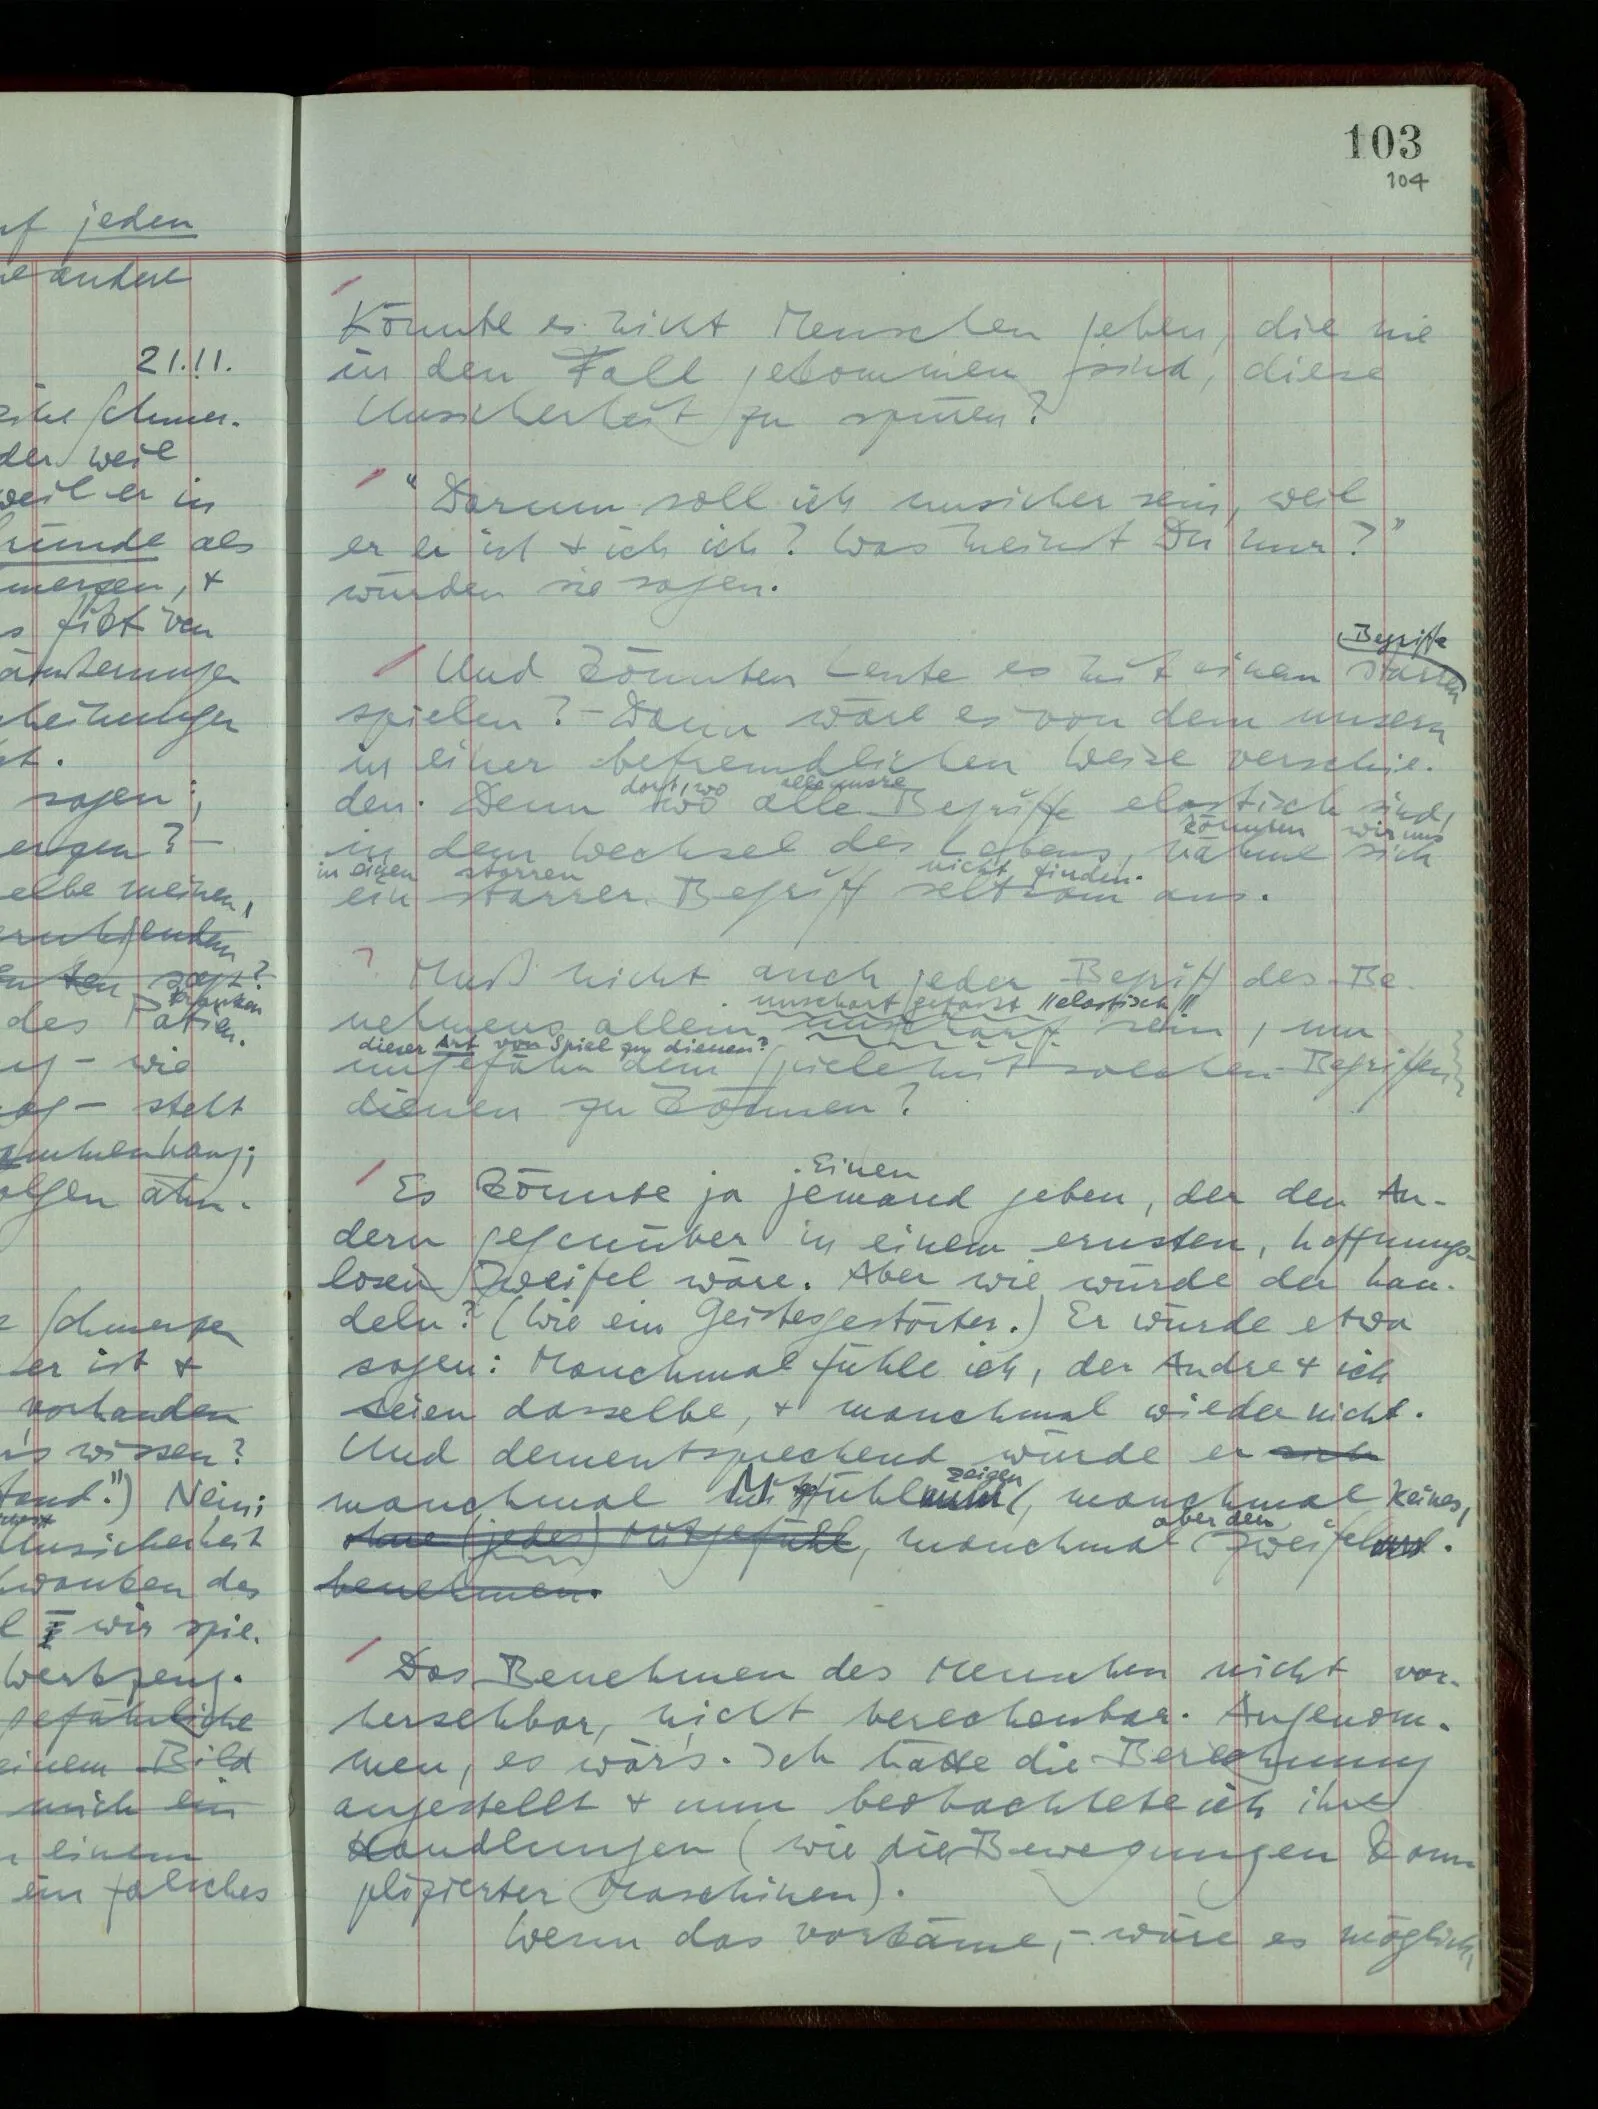 uf jeden
andere
21.11.
der weil
weil er in
Gründe als
merzen, +
s gibt von
äußerungen
st.
sagen;
erzen? –
elbe meinen,
sagt?
Kranken
des Patien.
– wie
– steht
ammenhang;
olgen ähn-
Schmerzen
er ist +
vorhanden
wissen?
tand.") Nein;
Unsicherheit
des
wir spie-
Werkzeug.
gefährliche
einem Bild
mich ein
einem
ein falsches
103
104
Könnte es nicht Menschen geben, die nie
in den Fall gekommen sind, diese
Unsicherheit zu spüren?
"Darum soll ich unsicher sein, weil
er er ist + ich ich? Was meinst Du nur?"
würden sie sagen.
Begriffe
Und könnten Leute es mit einem starren
spielen? – Dann wäre es von dem unsern
in einer befremdlichen Weise verschie-
den. Denn wo alle Begriffe elastisch sind,
dort, wo alle unsre
in dem Wechsel des Lebens, nähme sich
könnten wir uns
in einen starren nicht finden.
ein starrer Begriff seltsam aus.
? Muß nicht auch jeder Begriff des Be-
unscharf gefasst "elastisch"
nehmens allem unscharf sein, um
dieser Art von Spiel zu dienen?
ungefähr dem Spiele mit solchen Begriffen
dienen zu können?
Einen
Es könnte ja jemand geben, der den An-
dern gegenüber in einem ernsten, hoffnungs-
losen Zweifel wäre. Aber wie würde der han-
deln? (Wie ein Geistesgestörter.) Er würde etwa
sagen: Manchmal fühle ich, der Andre + ich
seien dasselbe, + manchmal wieder nicht.
Und dementsprechend würde er sich
zeigen
manchmal Mitgefühl, manchmal keines,
aber den
ohne (jedes) Mitgefühl, manchmal Zweifel.
benehmen.
Das Benehmen des Menschen nicht vor-
hersehbar, nicht berechenbar. Angenom-
men, es wär's. Ich hätte die Berechnung
angestellt + nun beobachtete ich ihre
Handlungen (wie die Bewegungen kom-
plizierter Maschinen).
Wenn das vorkäme, – wäre es möglich,